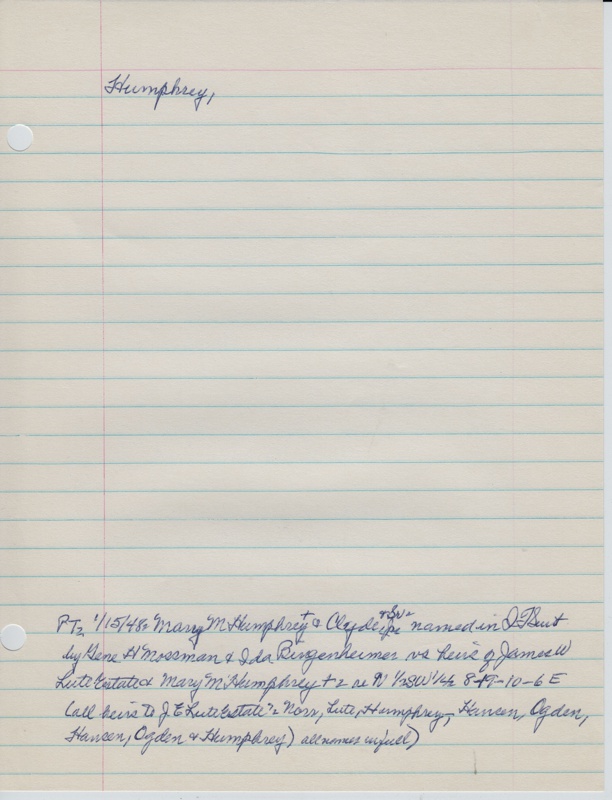 Humphrey,
PT2 1/15/48 = Mary M Humphrey + & Clyde named in
by Gene H Mossman & Ida Birgenheimer vs heirs of James W
Lute Estate & Mary M Humphrey + = re N 1/2 SW 1/4 8-19-10-6 E
(all heirs to J E Lute Estate = Norr, Lute, Humphrey, Hansen, Ogden,
Hansen, Ogden & Humphrey) all names in full)